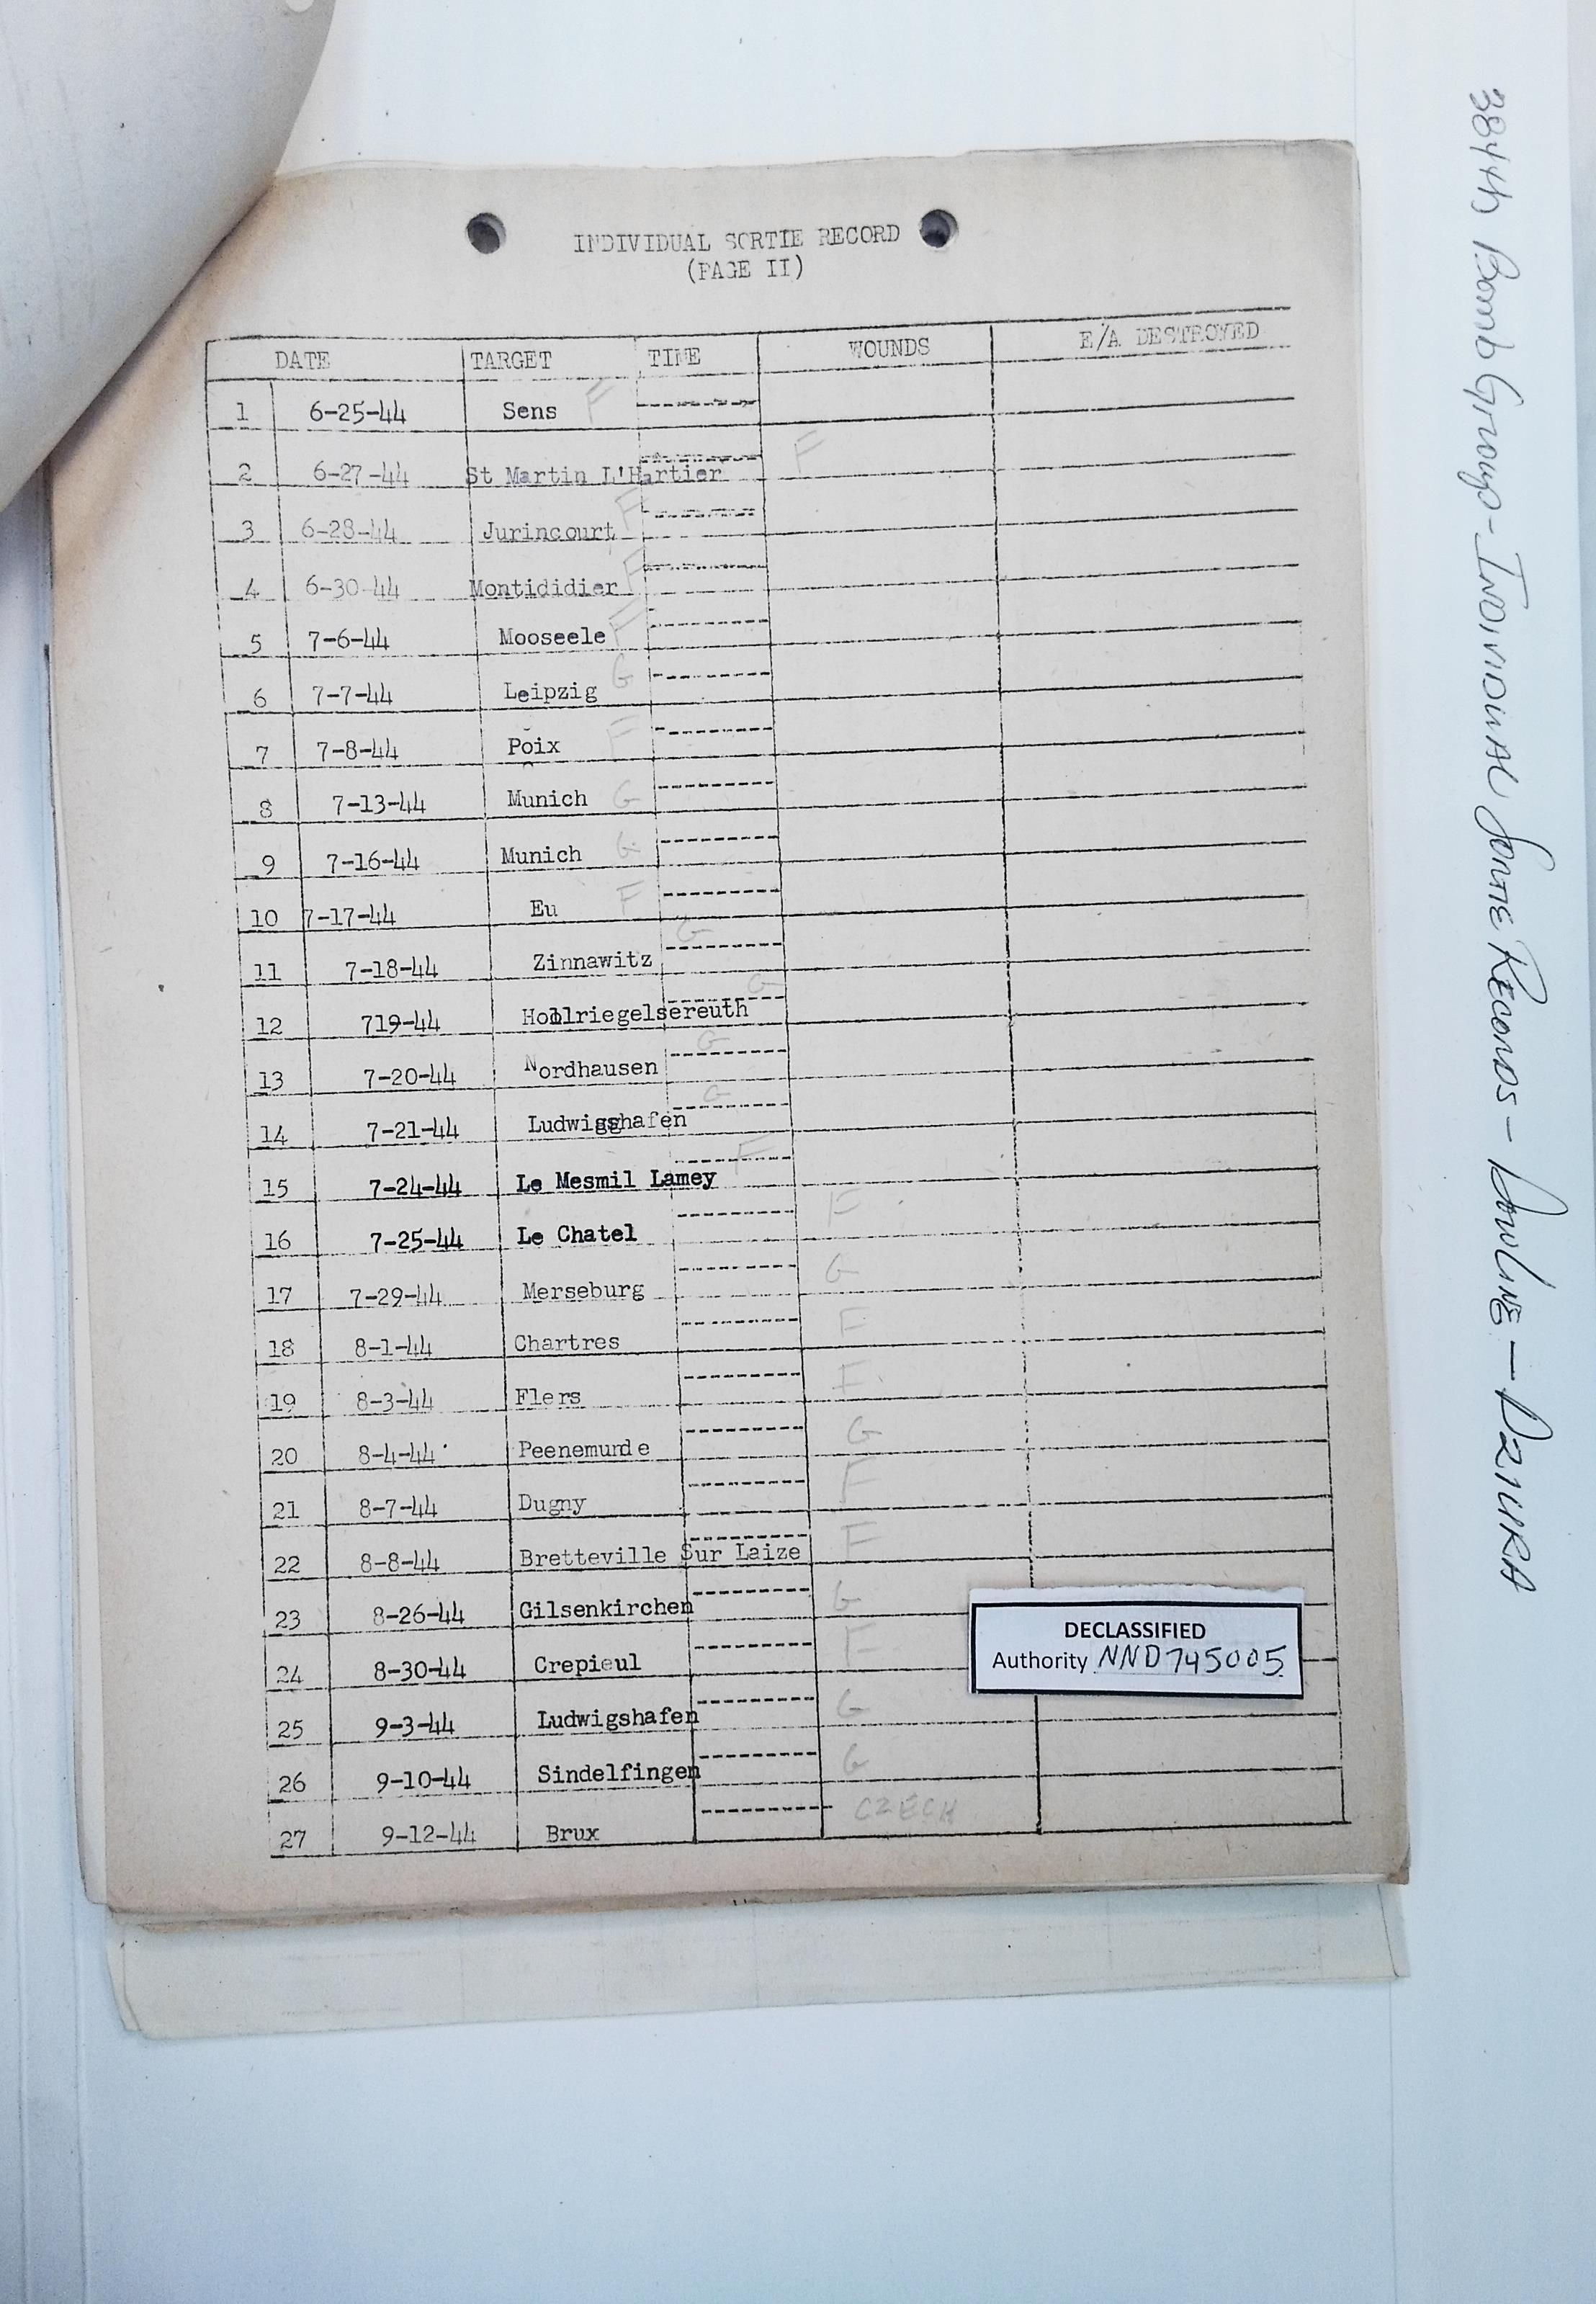 INDIVIDUAL SORTIE RECORD
(PAGE II)
DATE TARGET TIME WOUNDS E/A DESTROYED
1 6-25-44 Sens F
2 6-27-44 St Martin L'Hartier F
3 6-28-44 Jurincourt F
4 6-30-44 Montididier F
5 7-6-44 Mooseele F
6 7-7-44 Leipzig G
7 7-8-44 Poix F
8 7-13-44 Munich G
9 7-16-44 Munich G
10 7-17-44 Eu F
11 7-18-44 Zinnawitz G
12 719-44 Hollriegelsereuth G
13 7-20-44 Nordhausen G
14 7-21-44 Ludwigshafen G
15 7-24-44 Le Mesmil Lamey F
16 7-25-44 Le Chatel F
17 7-29-44 Merseburg G
18 8-1-44 Chartres F
19 8-3-44 Flers F
20 8-4-44 Peenemunde G
21 8-7-44 Dugny F
22 8-8-44 Bretteville Sur Laize F
23 8-26-44 Gilsenkirchen G
24 8-30-44 Crepieul F
25 9-3-44 Ludwigshafen G
26 9-10-44 Sindelfingen G
27 9-12-44 Brux CZECH
DECLASSIFIED
Authority NND745005
384th Bomb Group - INDIVIDUAL SORTIE RECORDS - DOWLING - DZIURA